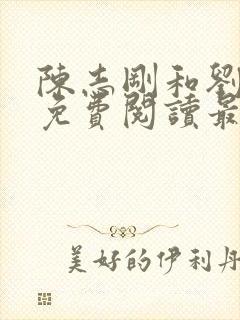 陳志剛和劉
免費閱讀最
美好的伊利丹